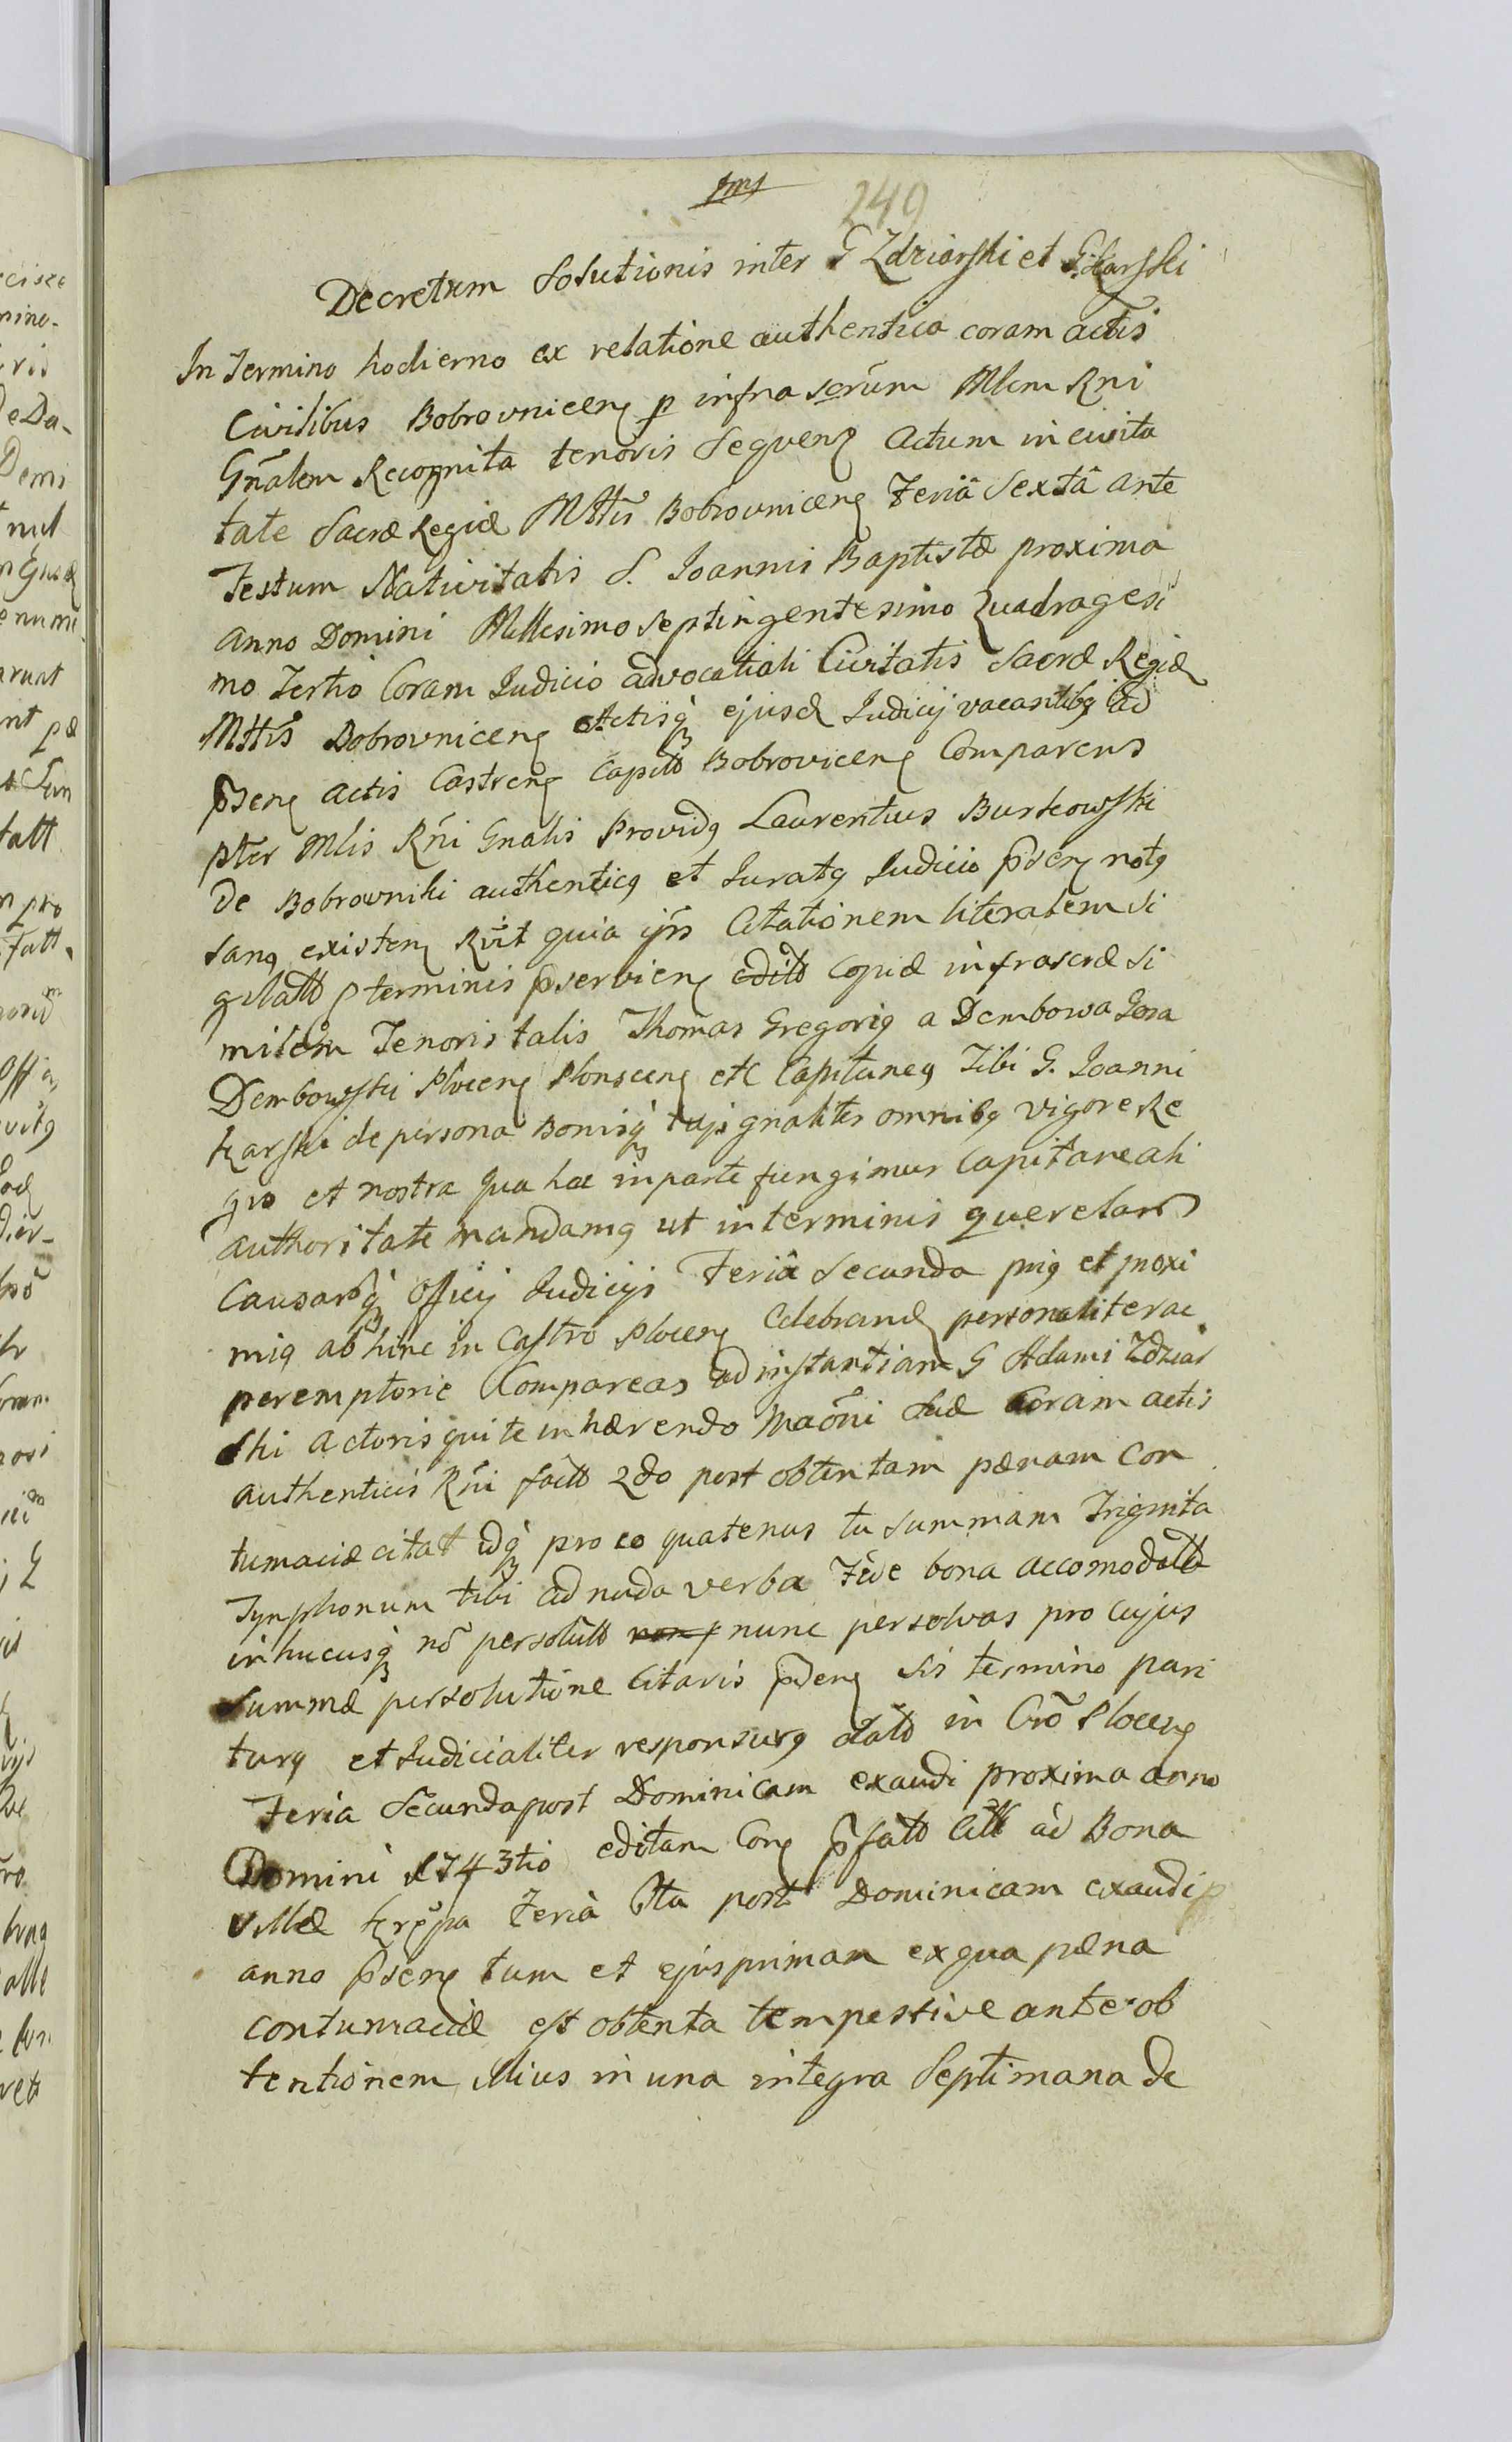 249
Decretum Solutionis inter G Zdziarski et G. Karski
In Termino hodierno ex relatione authentica coram actis
Civilibus Bobrovnicen p infra scrūm Mlem Rni
Gn̄alem Recognita tenoris Sequen Actum in civita
tate Sacræ Regiæ Mttis Bobrovnicen Feriâ Sextâ ante
Festum Nativitatis S. Joannis Baptistæ proximâ
Anno Domini Millesimo Septingentesimo Quadragesi
mo Tertio Coram Iudicio advocatiali Civitatis Sacræ Regiæ
Mttis Bobrovnicen Actisq ejusd Iudicij vacantibq ad
p̄sen actis Castren Capitt Bobrovicen Comparens
pter Mlis Rn̄i Gnalis Providq Laurentius Burkowski
de Bobrowniki authenticq et Juratq Iudicio p̄sen notq
sanq existen Rv̄it quia ijs Citationem literalem si
gillatt p terminis p̄servien editt copiæ infrascræ si
milem Tenoris talis Thomas Gregoriq a Dembowa Gora
Dembowski Plocen Plonscen etc Capitaneq Tibi G. Joanni
Karski de persona Bonisq tujs gnaliter omnibq vigore Re
gia et nostra qua hac in parte fungimur Capitaneali
authoritate mandamq ut in terminis querelar
Causarq officij Iudicijs Feriâ Secunda priq et proxi
miq abhinc in Castro Plocen Celebrand personaliter ac
peremptorie Compareas ad instantiam G Adami Zdziar
ski Actoris qui te inhærendo Maōni Suæ Coram actis
authenticis Rn̄i fatt 2do post obtentam pænam Con
tumaciæ citat idq pro eo quatenus tu summam Triginta
Tynphonum tibi ad nuda verba Fide bona accomodatt
in hucusq nō persolutt nunc persolvas pro cujus
Summæ persolutione Citaris p̄den sis termino pari
turq et Iudicialiter responsurq datt in Crō Plocen
Feria Secunda post Dominicam exaudi proxima anno
Domini 1743tio editam Con p̄fatt Citt ad Bona
Villæ Krępa Feria 6ta post Dominicam exaudi p
anno p̄sen tum et ejus primam ex qua pæna
contumaciæ est obtenta tempestive ante ob
tentionem illius in una integra Septimana de